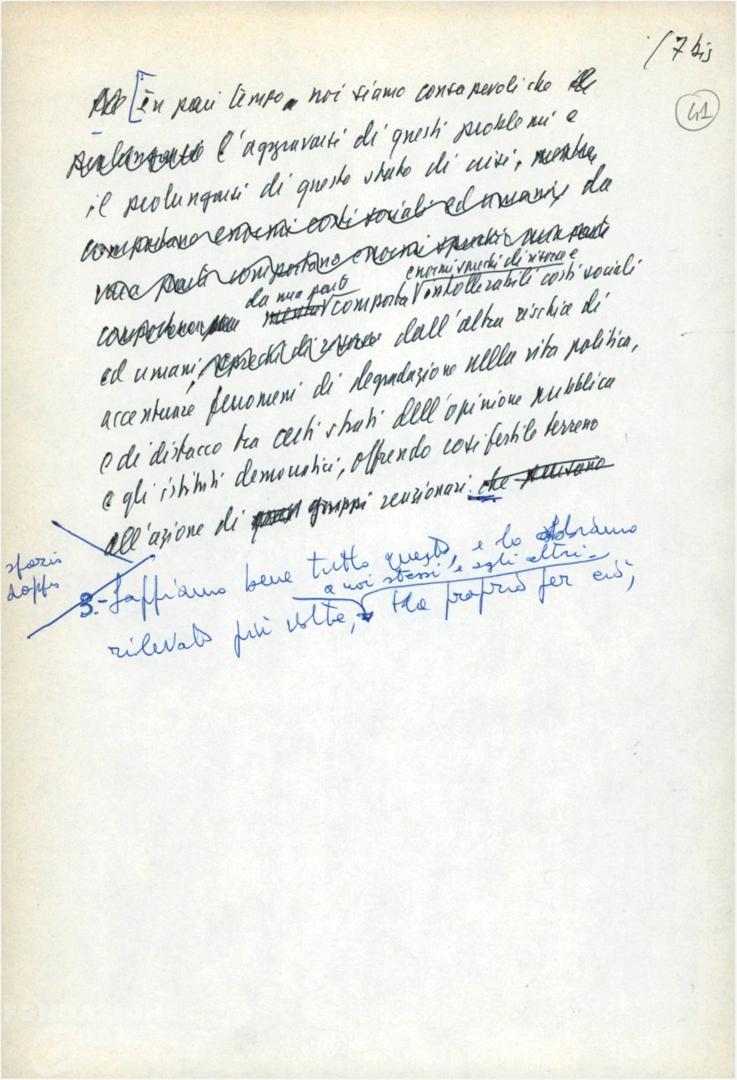 /7 bis
41
[in pari tempo, noi siamo consapevoli che il
prolungarsi l'aggravarsi di questi problemi e
il prolungarsi di questo stato di crisi, mentre
comportano enormi costi sociali ed umani, da
una parte comportano enormi sprechi
da una parte enormi sprechi di risorse e
comporta intollerabili costi sociali
ed umani, sprechi di risorse dall'altra rischia di
accentuare fenomeni di degradazione nella vita politica,
e di distacco tra certi strati dell'opinione pubblica
e gli istituti democratici, offrendo così fertile terreno
all'azione di gruppi reazionari. che
spazio
doppio
3.- Sappiamo bene tutto questo, e lo abbiamo
a noi stessi e agli altri.
rilevato più volte, Ma proprio per ciò,